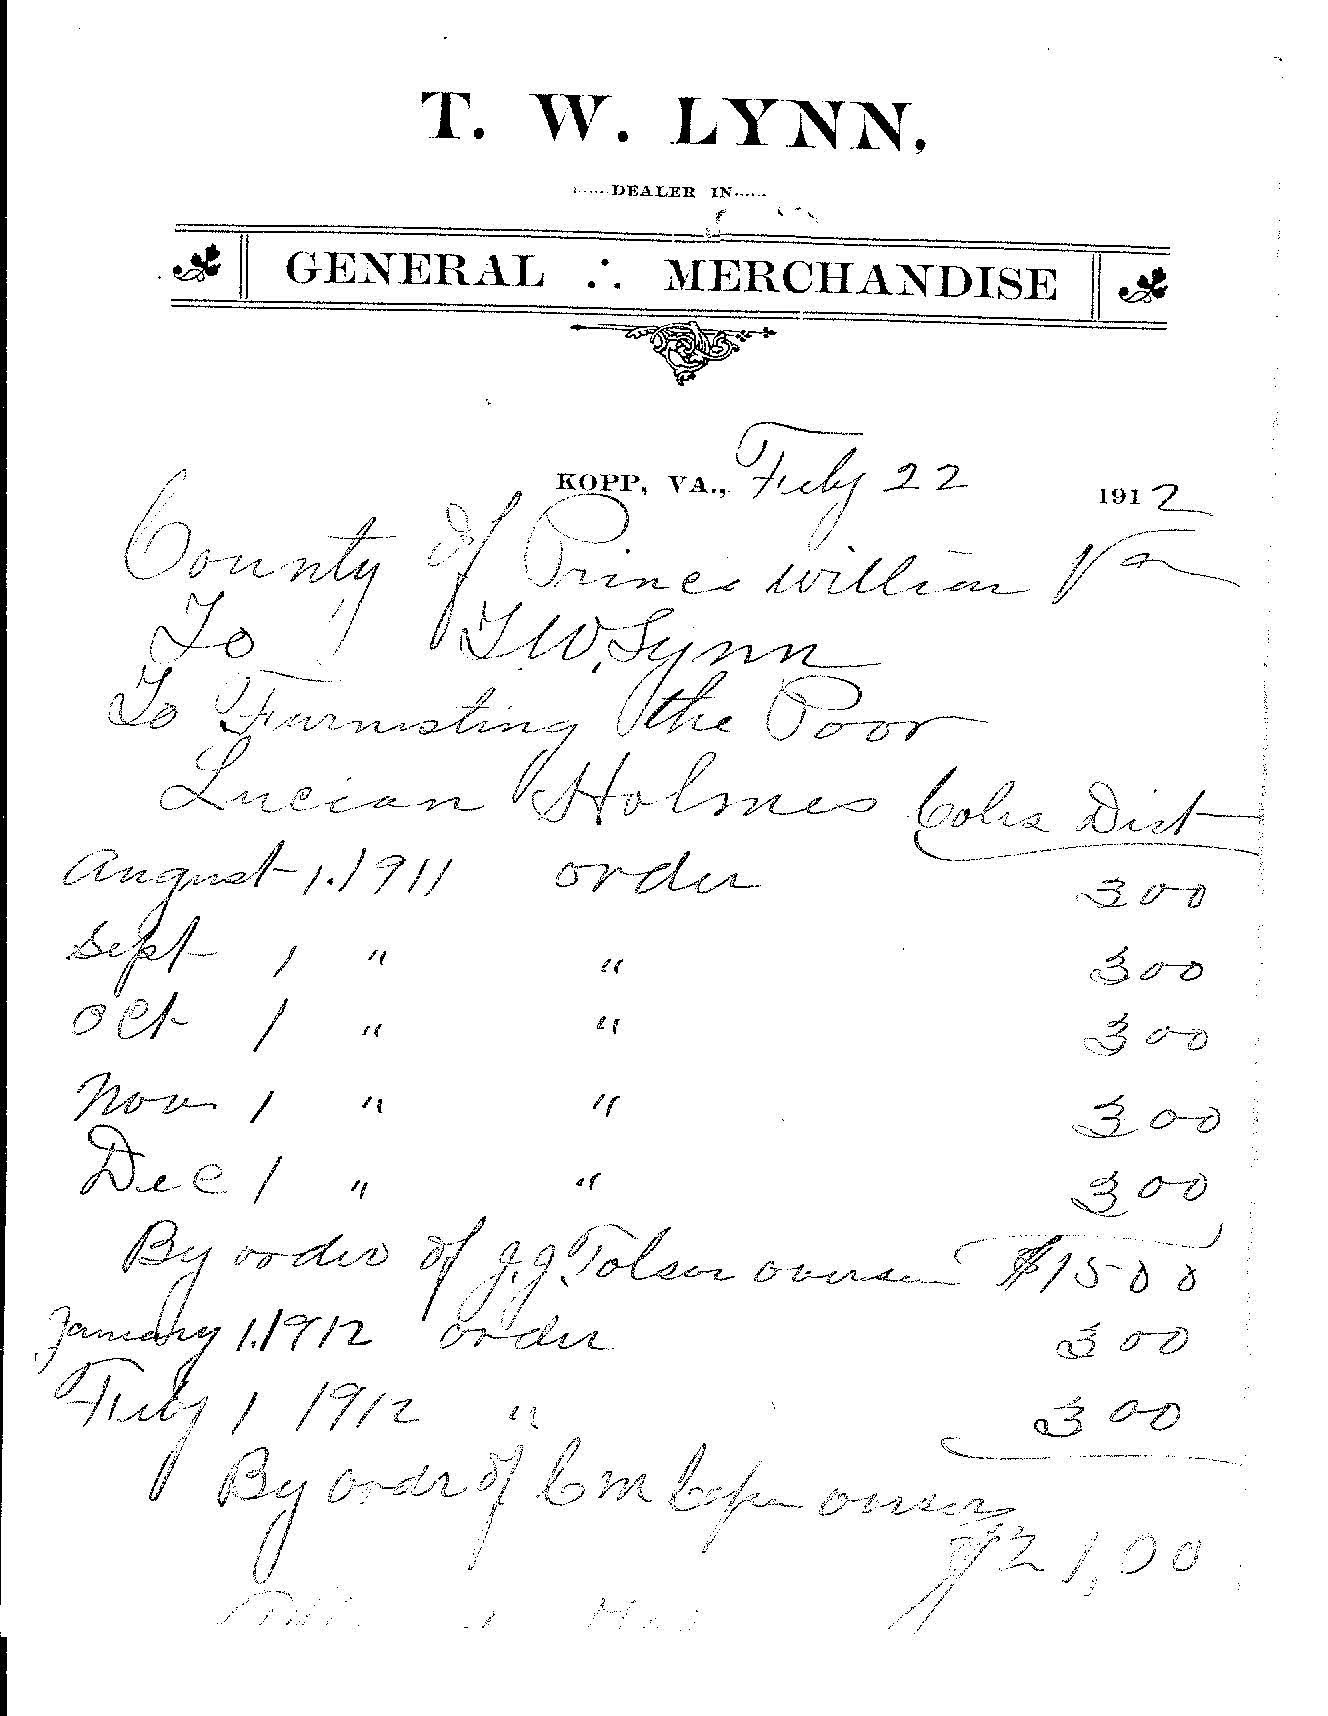 T. W. LYNN.
DEALER IN
GENERAL ∴ MERCHANDISE
KOPP, VA., Feby 22 1912
County of Prince William Va
To T W, Lynn
To Furnisting the Poor
Lucian Holmes Coles Dist
August 1. 1911 order 300
Sept 1 " " 300
Oct 1 " " 300
Nov 1 " " 300
Dec 1 " " 300
By order of J. J. Tolson overseer $1500
January 1. 1912 order 300
Feby 1 1912 " 300
By ordr of C M Copen overseer
$21,00